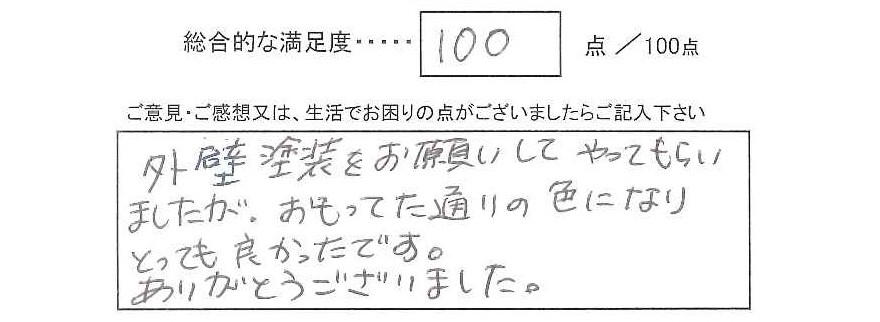 総合的な満足度・・・・・ 100 点 ／100点
ご意見・ご感想又は、生活でお困りの点がございましたらご記入下さい
外壁塗装をお願いして やってもらい
ましたが、おもってた通りの色になり
とっても良かったです。
ありがとうございました。